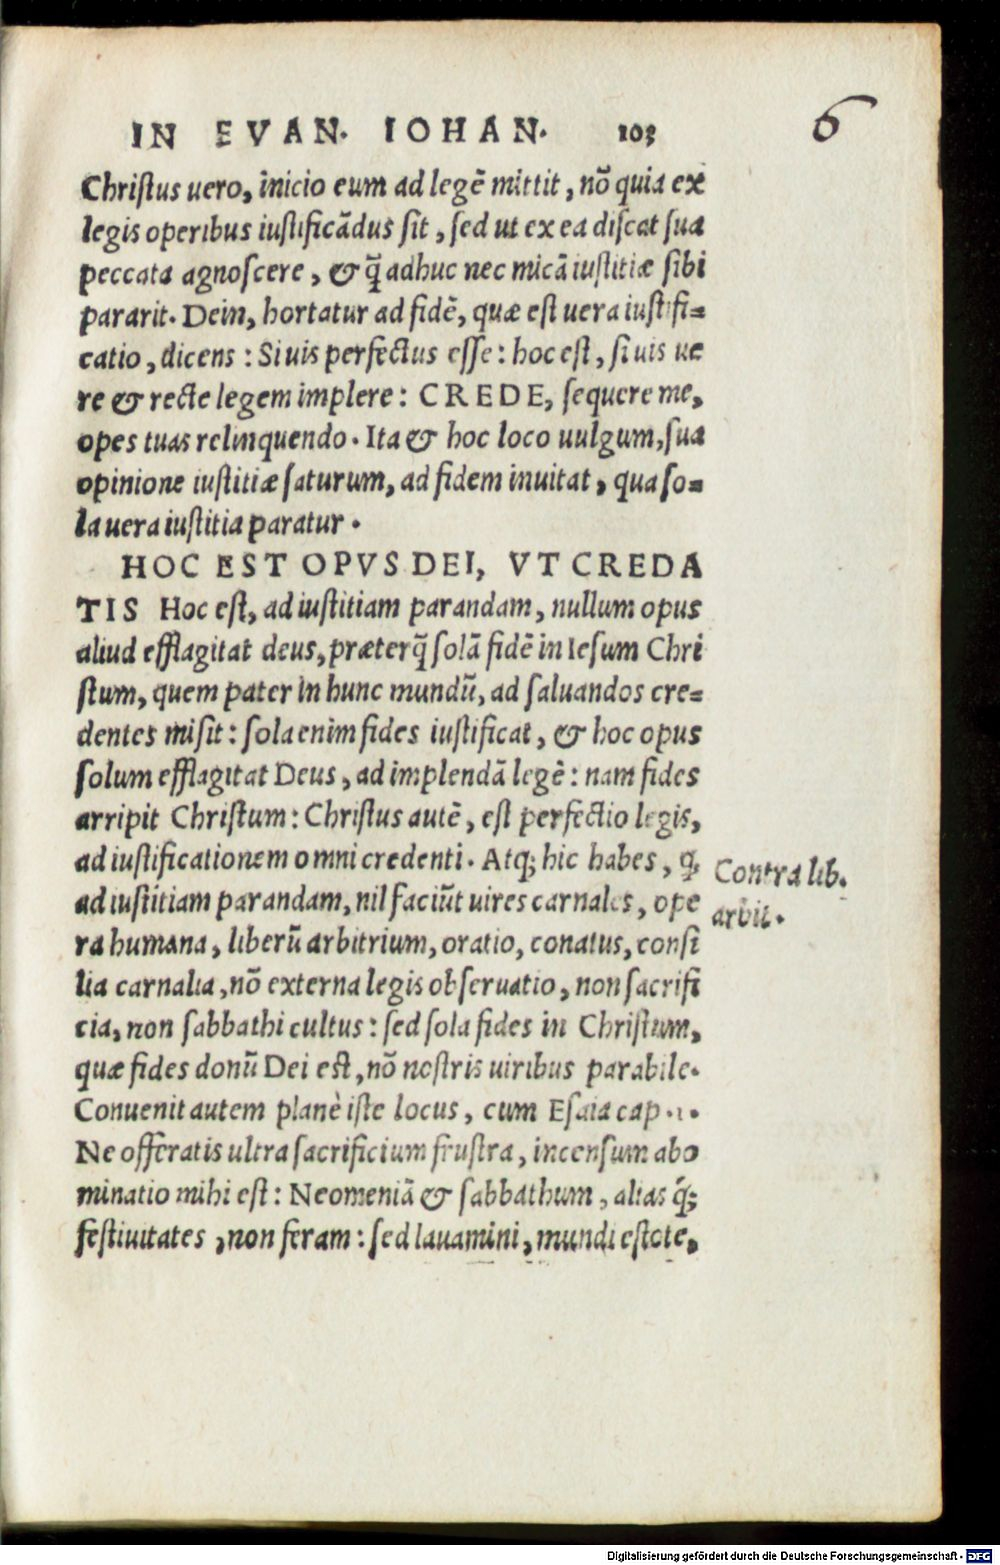 IN EVAN. IOHAN. 103
6
Christus uero, inicio eum ad legē mittit, nō quia ex
legis operibus iustificādus sit, sed ut ex ea discat sua
peccata agnoscere, & q̄ adhuc nec micā iustitiæ sibi
pararit. Dein, hortatur ad fidē, quæ est uera iustifi=
catio, dicens: Si uis perfectus esse: hoc est, si uis ue
re & recte legem implere: CREDE, sequere me,
opes tuas relinquendo. Ita & hoc loco uulgum, sua
opinione iustitiæ saturum, ad fidem inuitat, qua so=
la uera iustitia paratur.
HOC EST OPVS DEI, VT CREDA
TIS Hoc est, ad iustitiam parandam, nullum opus
aliud efflagitat deus, præterq̄ solā fidē in Iesum Chri
stum, quem pater in hunc mundū, ad saluandos cre=
dentes misit: sola enim fides iustificat, & hoc opus
solum efflagitat Deus, ad implendā legē: nam fides
arripit Christum: Christus autē, est perfectio legis,
ad iustificationem omni credenti. Atq; hic habes, q̨
ad iustitiam parandam, nil faciūt uires carnales, ope
ra humana, liberū arbitrium, oratio, conatus, consi
lia carnalia, nō externa legis obseruatio, non sacrifi
cia, non sabbathi cultus: sed sola fides in Christum,
quæ fides donū Dei est, nō nostris uiribus parabile.
Conuenit autem planè iste locus, cum Esaia cap. 1.
Ne offeratis ultra sacrificium frustra, incensum abo
minatio mihi est: Neomeniā & sabbathum, alias q̄;
festiuitates, non feram: sed lauamini, mundi estote,
Contra lib.
arbit.
Digitalisierung gefördert durch die Deutsche Forschungsgemeinschaft - DFG